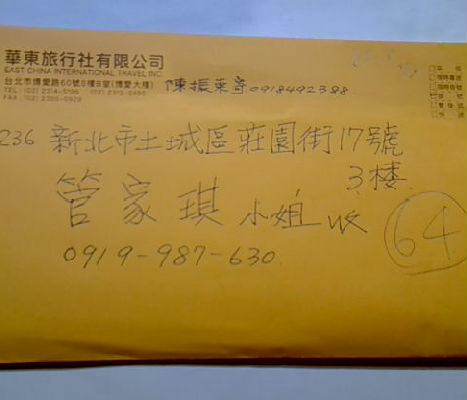 華東旅行社有限公司
EAST CHINA INTERNATIONAL TRAVEL INC.
台北市博愛路60號8樓B室(博愛大樓)
陳振萊寄0918492388
236 新北市土城區莊園街17號
3樓
管家琪 小姐 收
0919-987-630
64